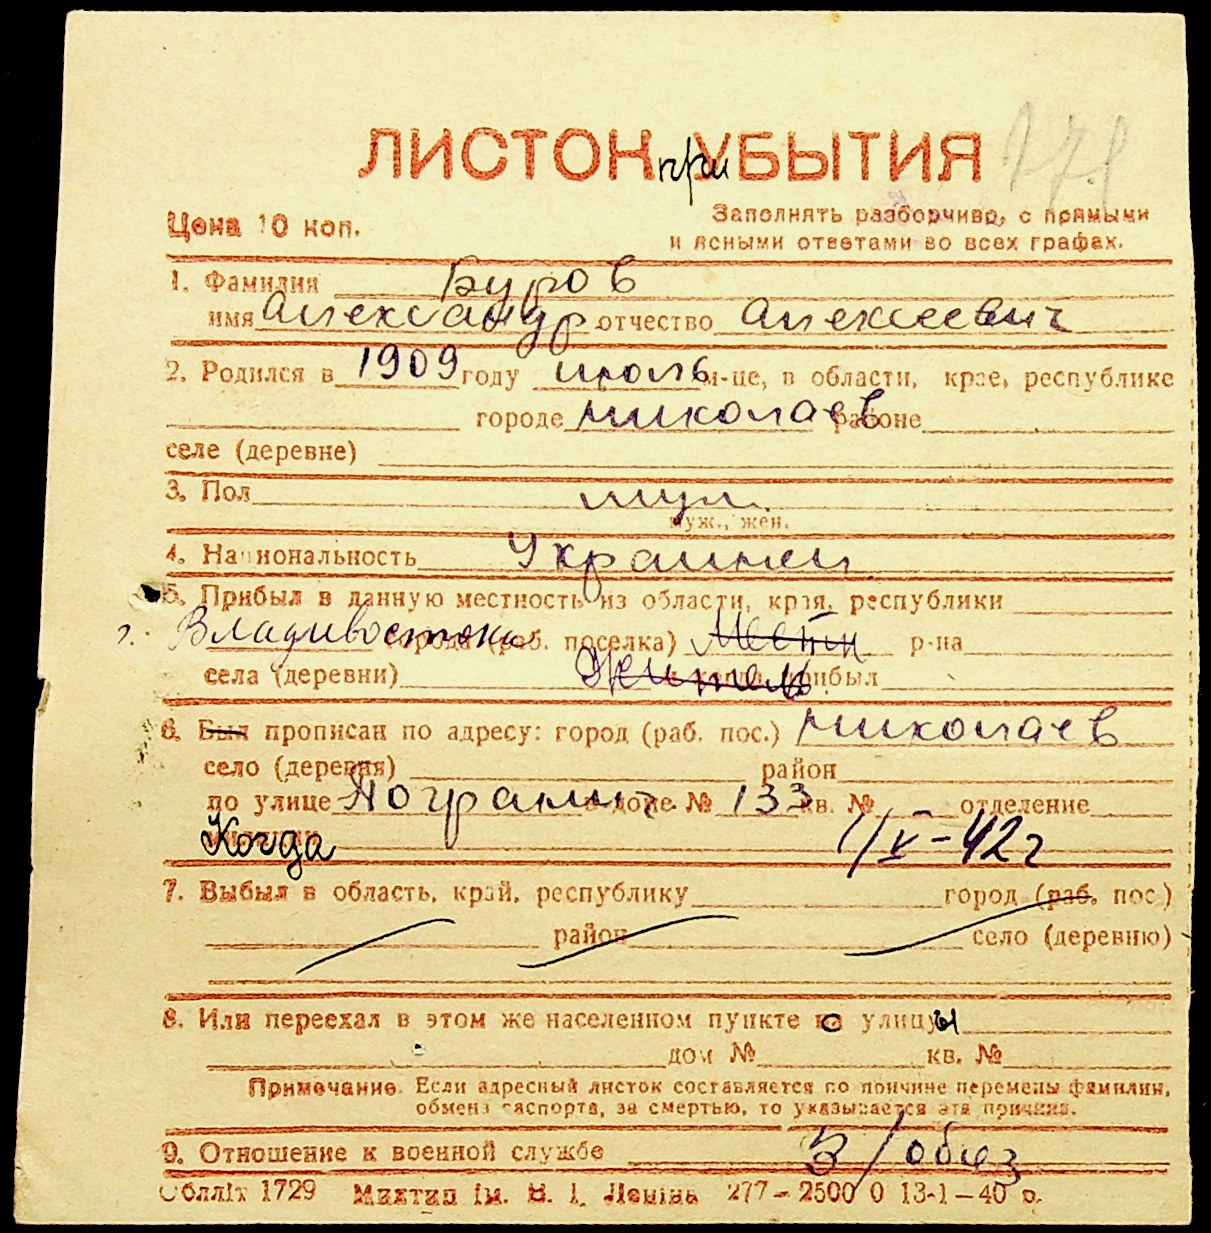 ЛИСТОК при УБЫТИЯ
Цена 10 коп.
Заполнять разборчиво, с прямыми
и ясными ответами во всех графах.
1. Фамилия Буров
имя Александр отчество Алексеевич
2. Родился в 1909 году июль м-це, в области, крае, республике
городе Николаев районе
селе (деревне)
3. Пол муж.
муж., жен.
4. Национальность Украинец
5. Прибыл в данную местность из области, края, республики
г. Владивостока города (раб. поселка) Местн р-на
села (деревни) Житель прибыл
6. Был прописан по адресу: город (раб. пос.) Николаев
село (деревня) район
по улице Погранич. в доме № 133 кв. № отделение
Когда милиции 1/V-42г
7. Выбыл в область, край, республику город (раб. пос.)
район село (деревню)
8. Или переехал в этом же населенном пункте с улицы
дом № кв. №
Примечание. Если адресный листок составляется по причине перемены фамилии,
обмена паспорта, за смертью, то указывается эта причина.
9. Отношение к военной службе В/обяз
Обллiт 1729 Миктип iм. В. I. Ленiна 277-2500 0 13-1-40 р.